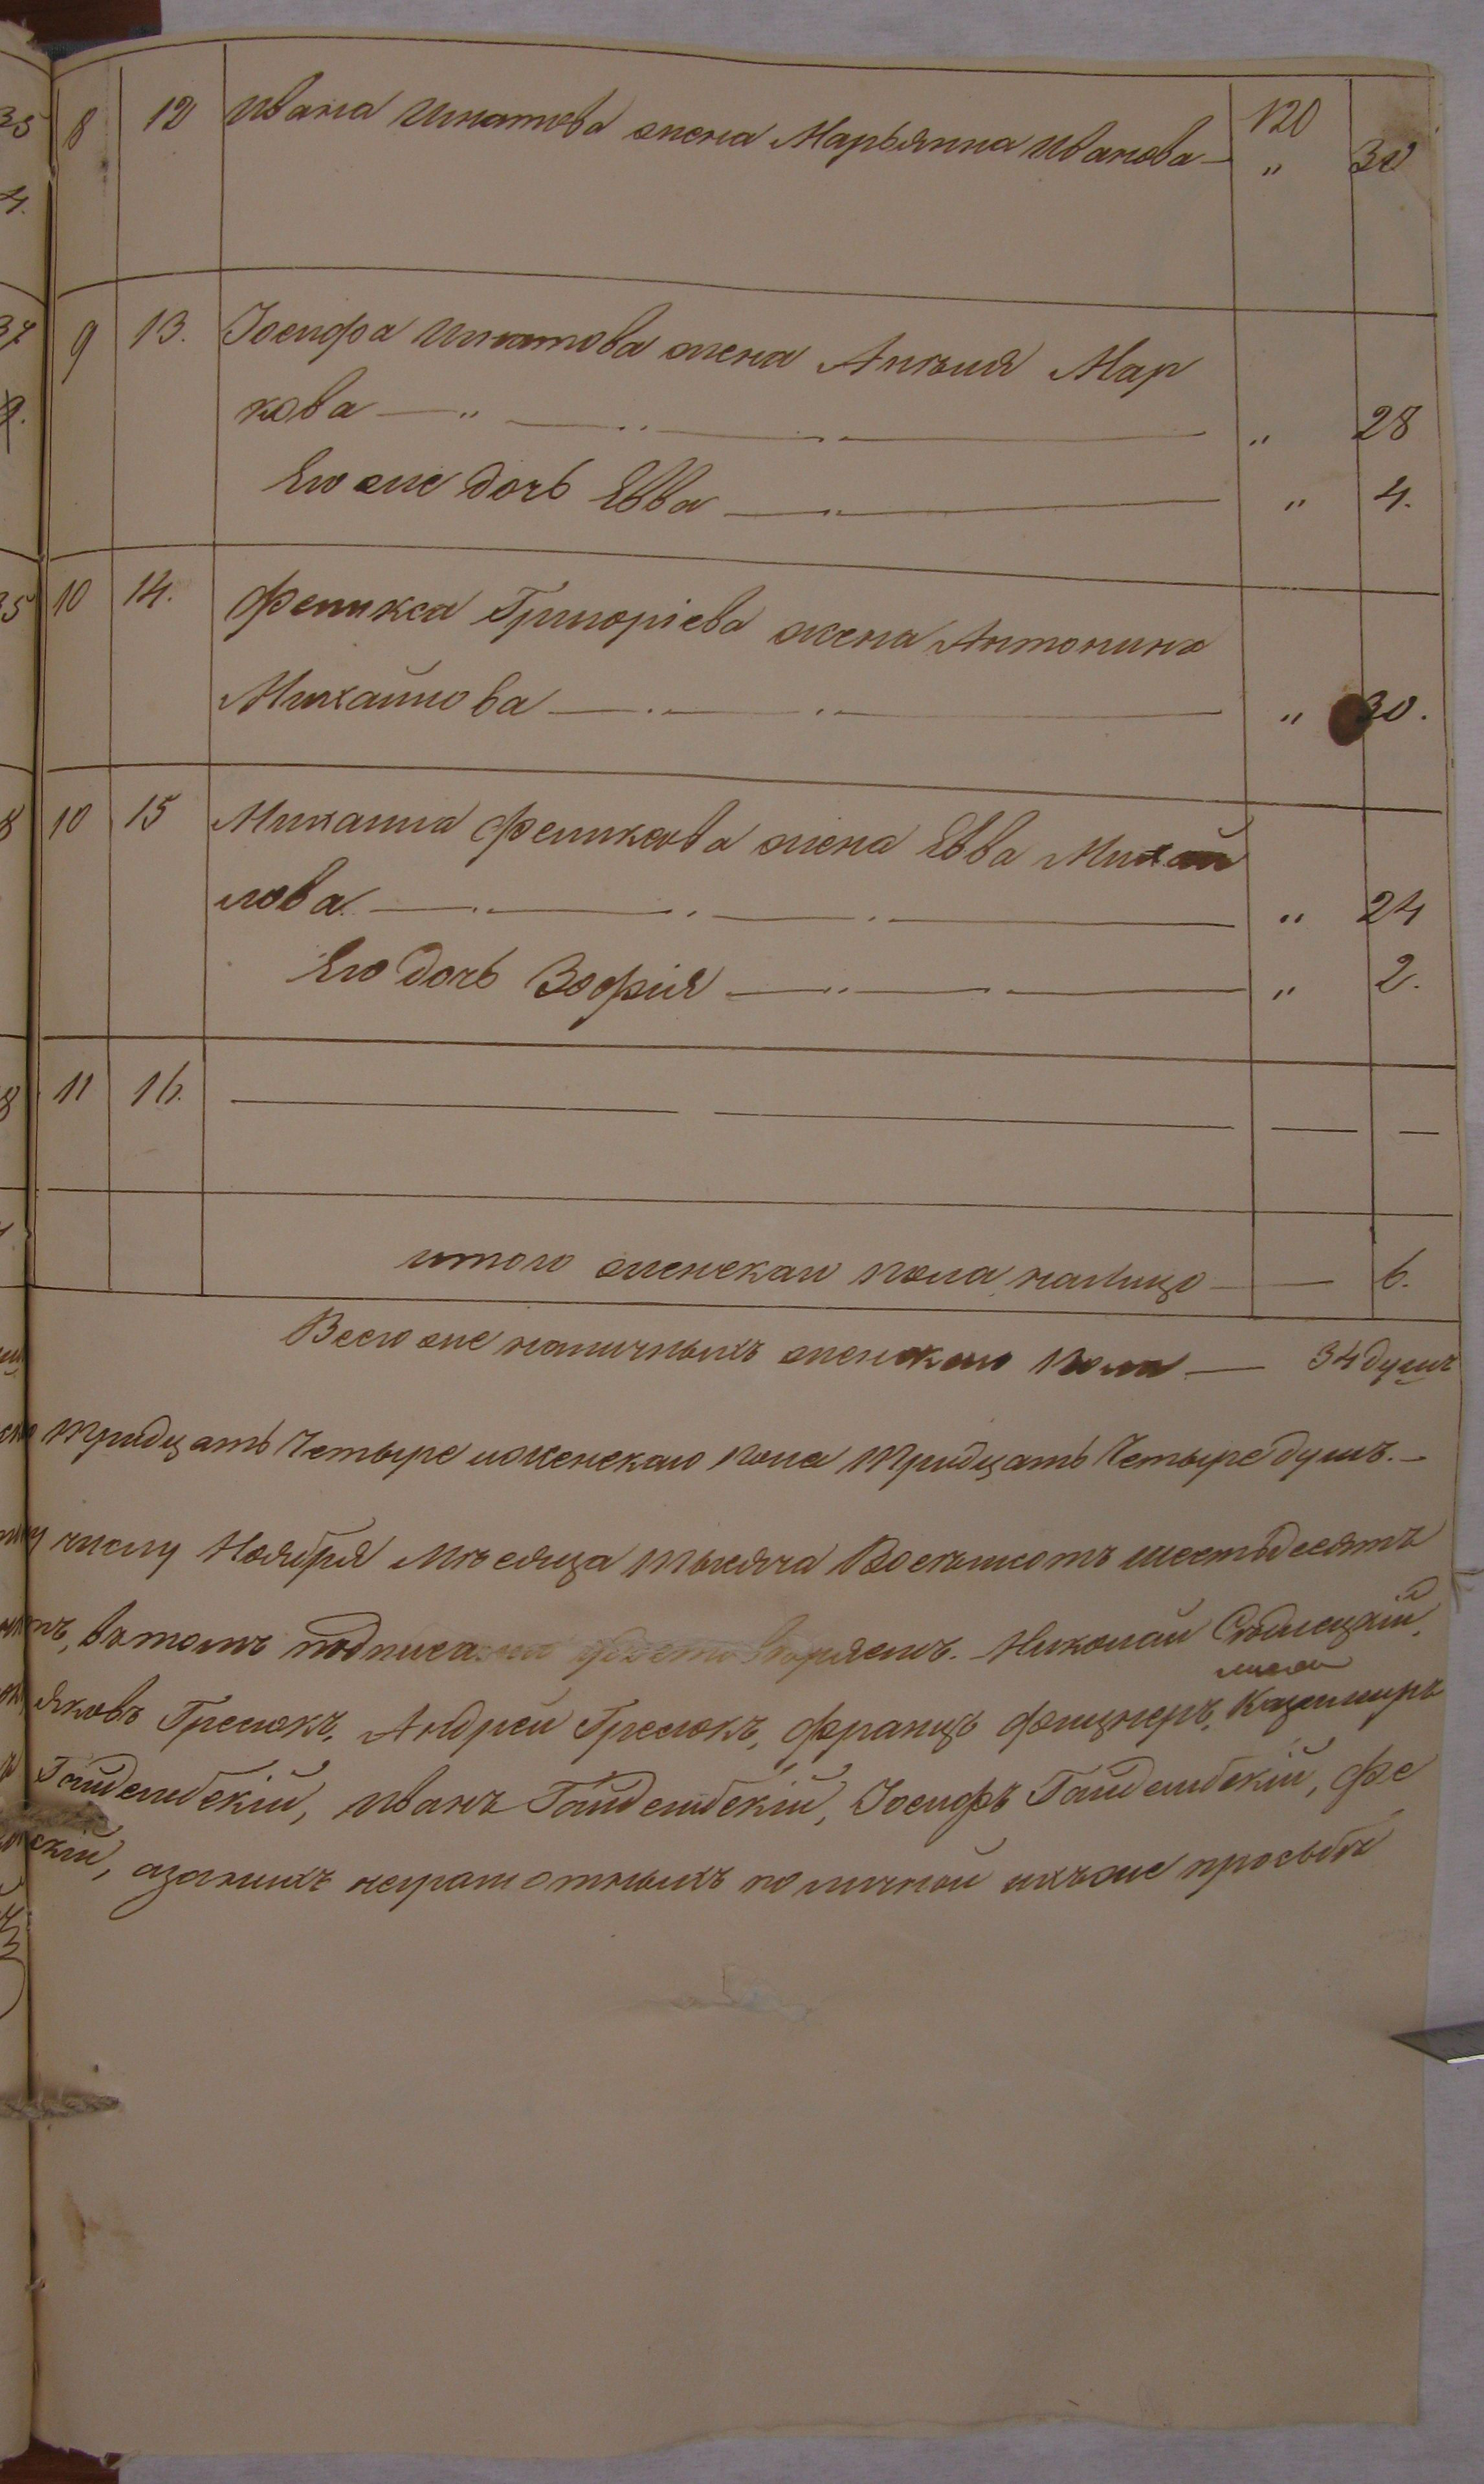 8 12 Ивана Игнатова жена Марьянна Иванова — „ 30
9 13. Іосифа Игнатова жена Анеля Мар
кова — „ — „ — „ — „ 28
Его же дочь Евва — „ — „ 4.
10 14. Феликса Григоріева жена Антонина
Михайлова — „ — „ — „ 30.
10 15 Михаила Феликсова жена Евва Михай
лова. — „ — „ — „ — „ 24
Его дочь Зофія — „ — „ — „ 2.
11 16. — — — —
итого женскаго пола налицо — — 6.
Всего же наличныхъ женскаго пола — 34 душъ
тридцать Четыре и женскаго пола тридцать Четыре душъ. —
числу Ноября Мѣсяца тысяча Восемьсотъ шестьдесятъ
въ томъ Николай
Яковъ Греслокъ, Андрей Греслокъ, Францъ Казимиръ
Гайдембскій, Иванъ Гайдембскій, Іосифъ Гайдембскій, Фе
скій, а за нихъ неграмотныхъ по личной ихъ же просьбѣ